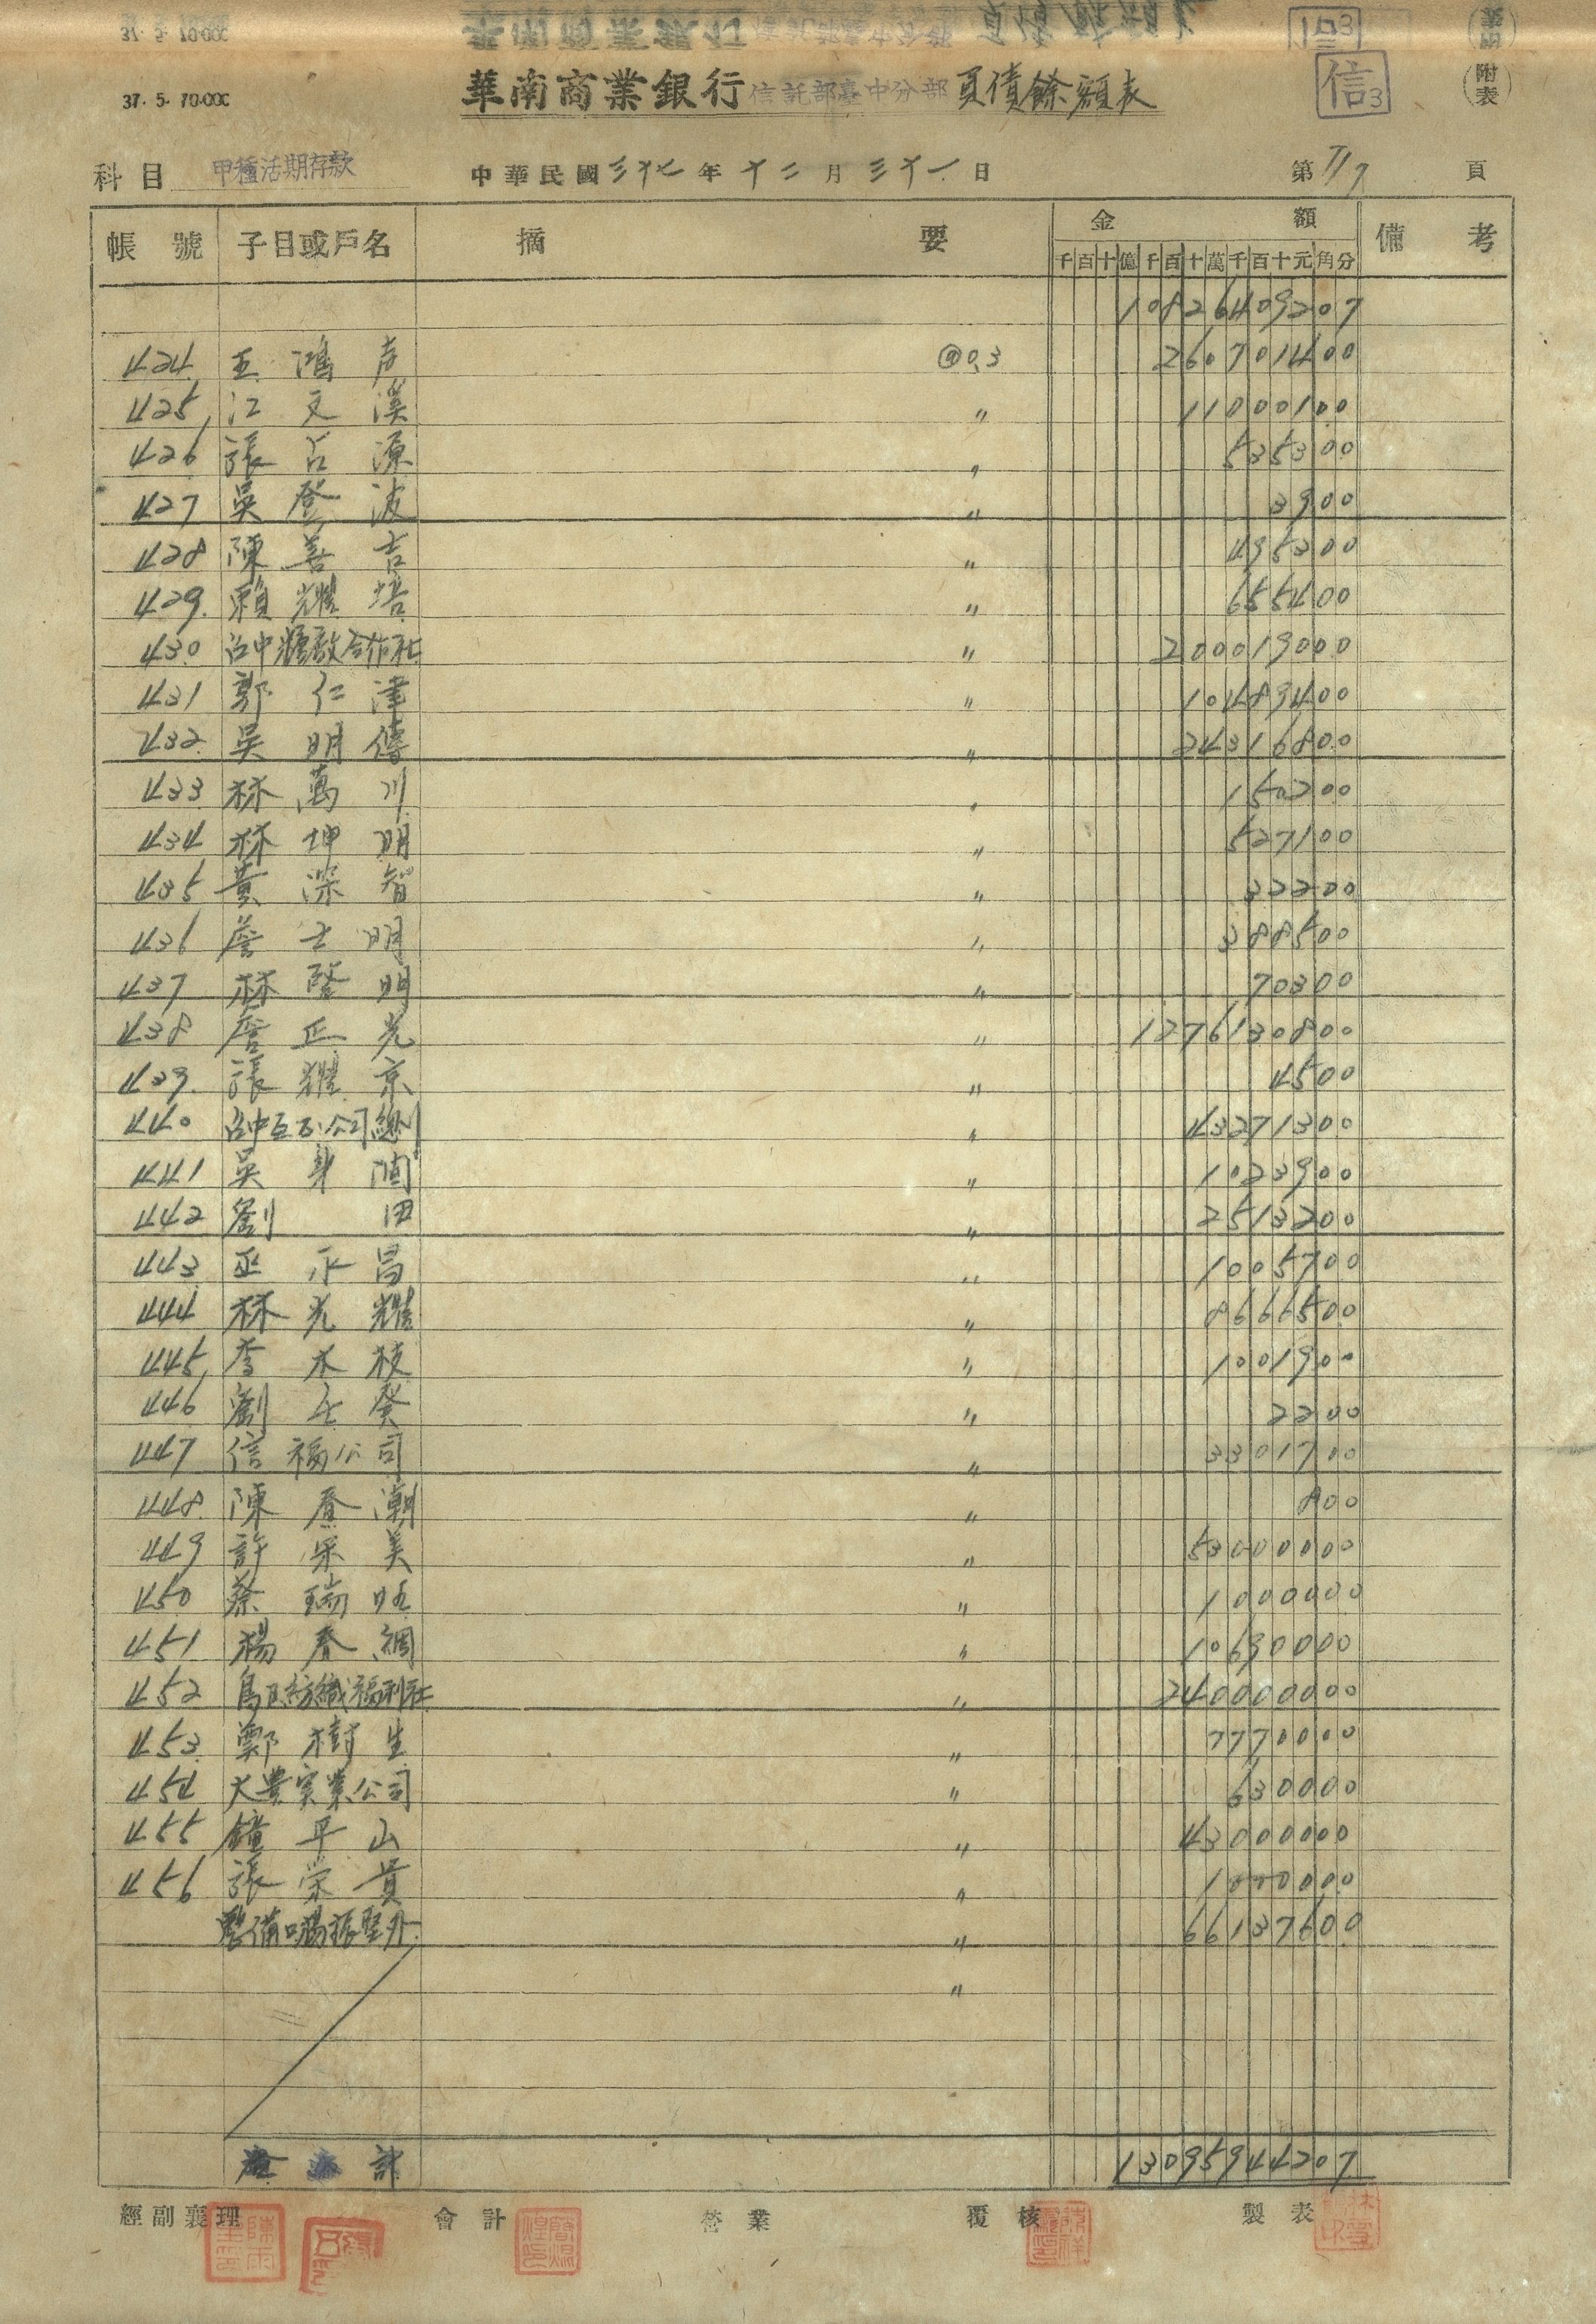 37. 5. 70.000
華南商業銀行信託部臺中分部負債餘額表
信3
(附表)
科目 甲種活期存款 中華民國三十七年十二月三十一日 第 頁
帳號 子目或戶名 摘要 金額 備考
千百十億千百十萬千百十元角分
10826409207
424 王鴻声 @0.3 260701400
425 江文溪 〃 11000100
426 張占源 〃 535300
427 吳登波 〃 3900
428 陳善吉 〃 495200
429 賴耀培 〃 655400
430 台中 合作社 〃 200019000
431 郭仁津 〃 10489400
432 吳明傳 〃 24316800
433 林萬川 〃 150200
434 林坤明 〃 527100
435 黃深智 〃 32200
436 詹士明 〃 388500
437 林隆明 〃 70300
438 詹正光 〃 1276130800
439 張耀京 〃 4500
440 台中 公司 〃 43271300
441 吳 〃 1023900
442 劉田 〃 2513200
443 巫永昌 〃 1005700
444 林光耀 〃 8666500
445 李木枝 〃 1001900
446 劉 癸 〃 2200
447 信福公司 〃 3301700
448 陳 潮 〃 800
449 許采美 〃 53000000
450 蔡瑞 〃 1000000
451 楊春綢 〃 10690000
452 烏日紡織福利社 〃 240000000
453 鄭樹生 〃 7770000
454 大豊実業公司 〃 630000
455 鐘平山 〃 43000000
456 張栄貴 〃 1000000
整備口楊振聲外 〃 66137600
〃
計 13095944207
經副襄理 會計 營業 覆核 製表